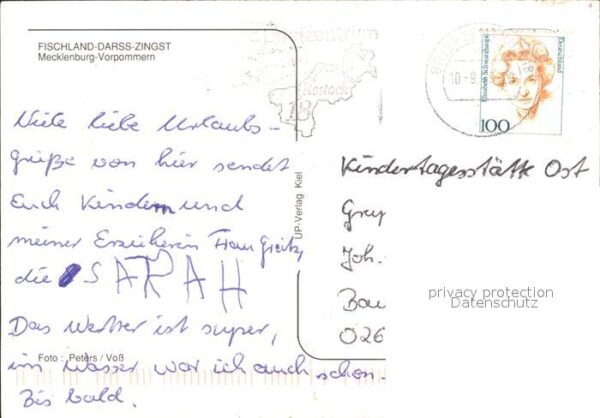 FISCHLAND-DARSS-ZINGST
Mecklenburg-Vorpommern
Viele liebe Urlaubs-
grüße von hier sendet
Euch Kindern und
meiner Erzieherin Frau
die SARAH
Das Wetter ist super,
im Wasser war ich auch schon.
Bis bald.
Foto : Peters / Voß
UP-Verlag Kiel
Rostock
18
10-9
Elisabeth Schwarzhaupt
Deutschland
100
Kindertagesstätte Ost
Joh.
026
privacy protection
Datenschutz